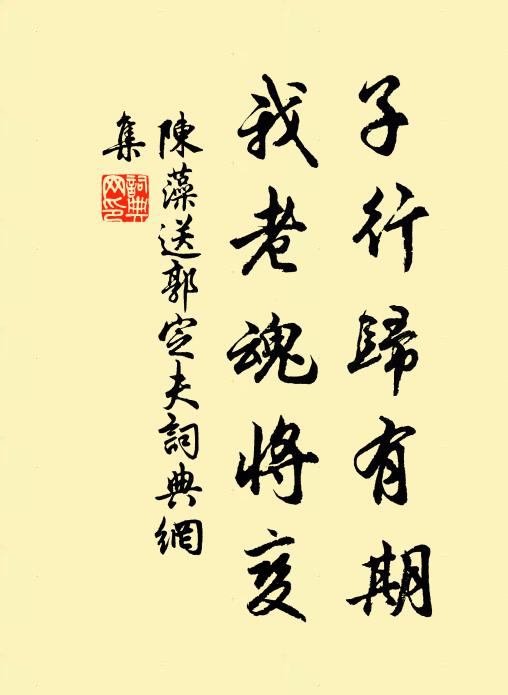 子行歸有期
我老魂將变
陳藻送郭定夫詞典網
集
詞典
网印